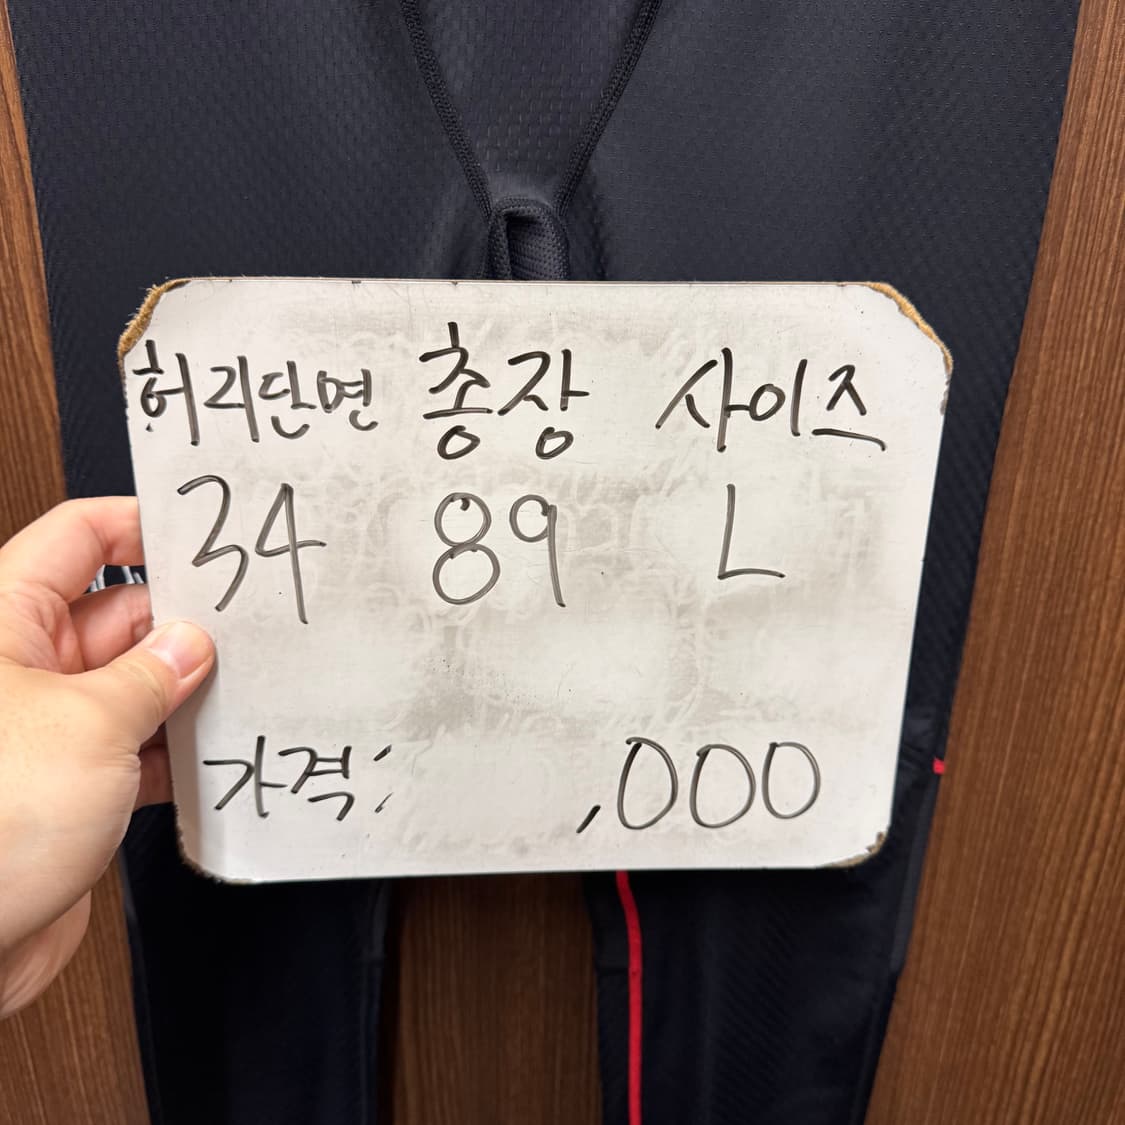 허리단면 총장 사이즈
34 89 L
가격: ,000